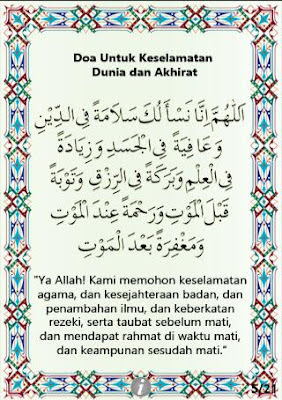 Doa Untuk Keselamatan
Dunia dan Akhirat
اَللّٰهُمَّ اِنَّا نَسْأَلُكَ سَلَامَةً فِى الدِّيْنِ
وَعَافِيَةً فِى الْجَسَدِ وَزِيَادَةً
فِى الْعِلْمِ وَبَرَكَةً فِى الرِّزْقِ وَتَوْبَةً
قَبْلَ الْمَوْتِ وَرَحْمَةً عِنْدَ الْمَوْتِ
وَمَغْفِرَةً بَعْدَ الْمَوْتِ
"Ya Allah! Kami memohon keselamatan
agama, dan kesejahteraan badan, dan
penambahan ilmu, dan keberkatan
rezeki, serta taubat sebelum mati,
dan mendapat rahmat di waktu mati,
dan keampunan sesudah mati."
i
5/21